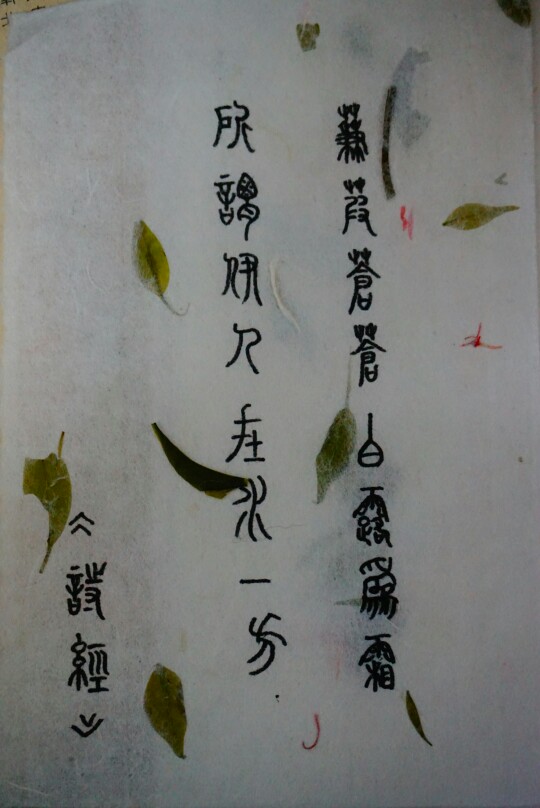 蒹葭蒼蒼白露爲霜
所謂伊人在水一方
《詩經》